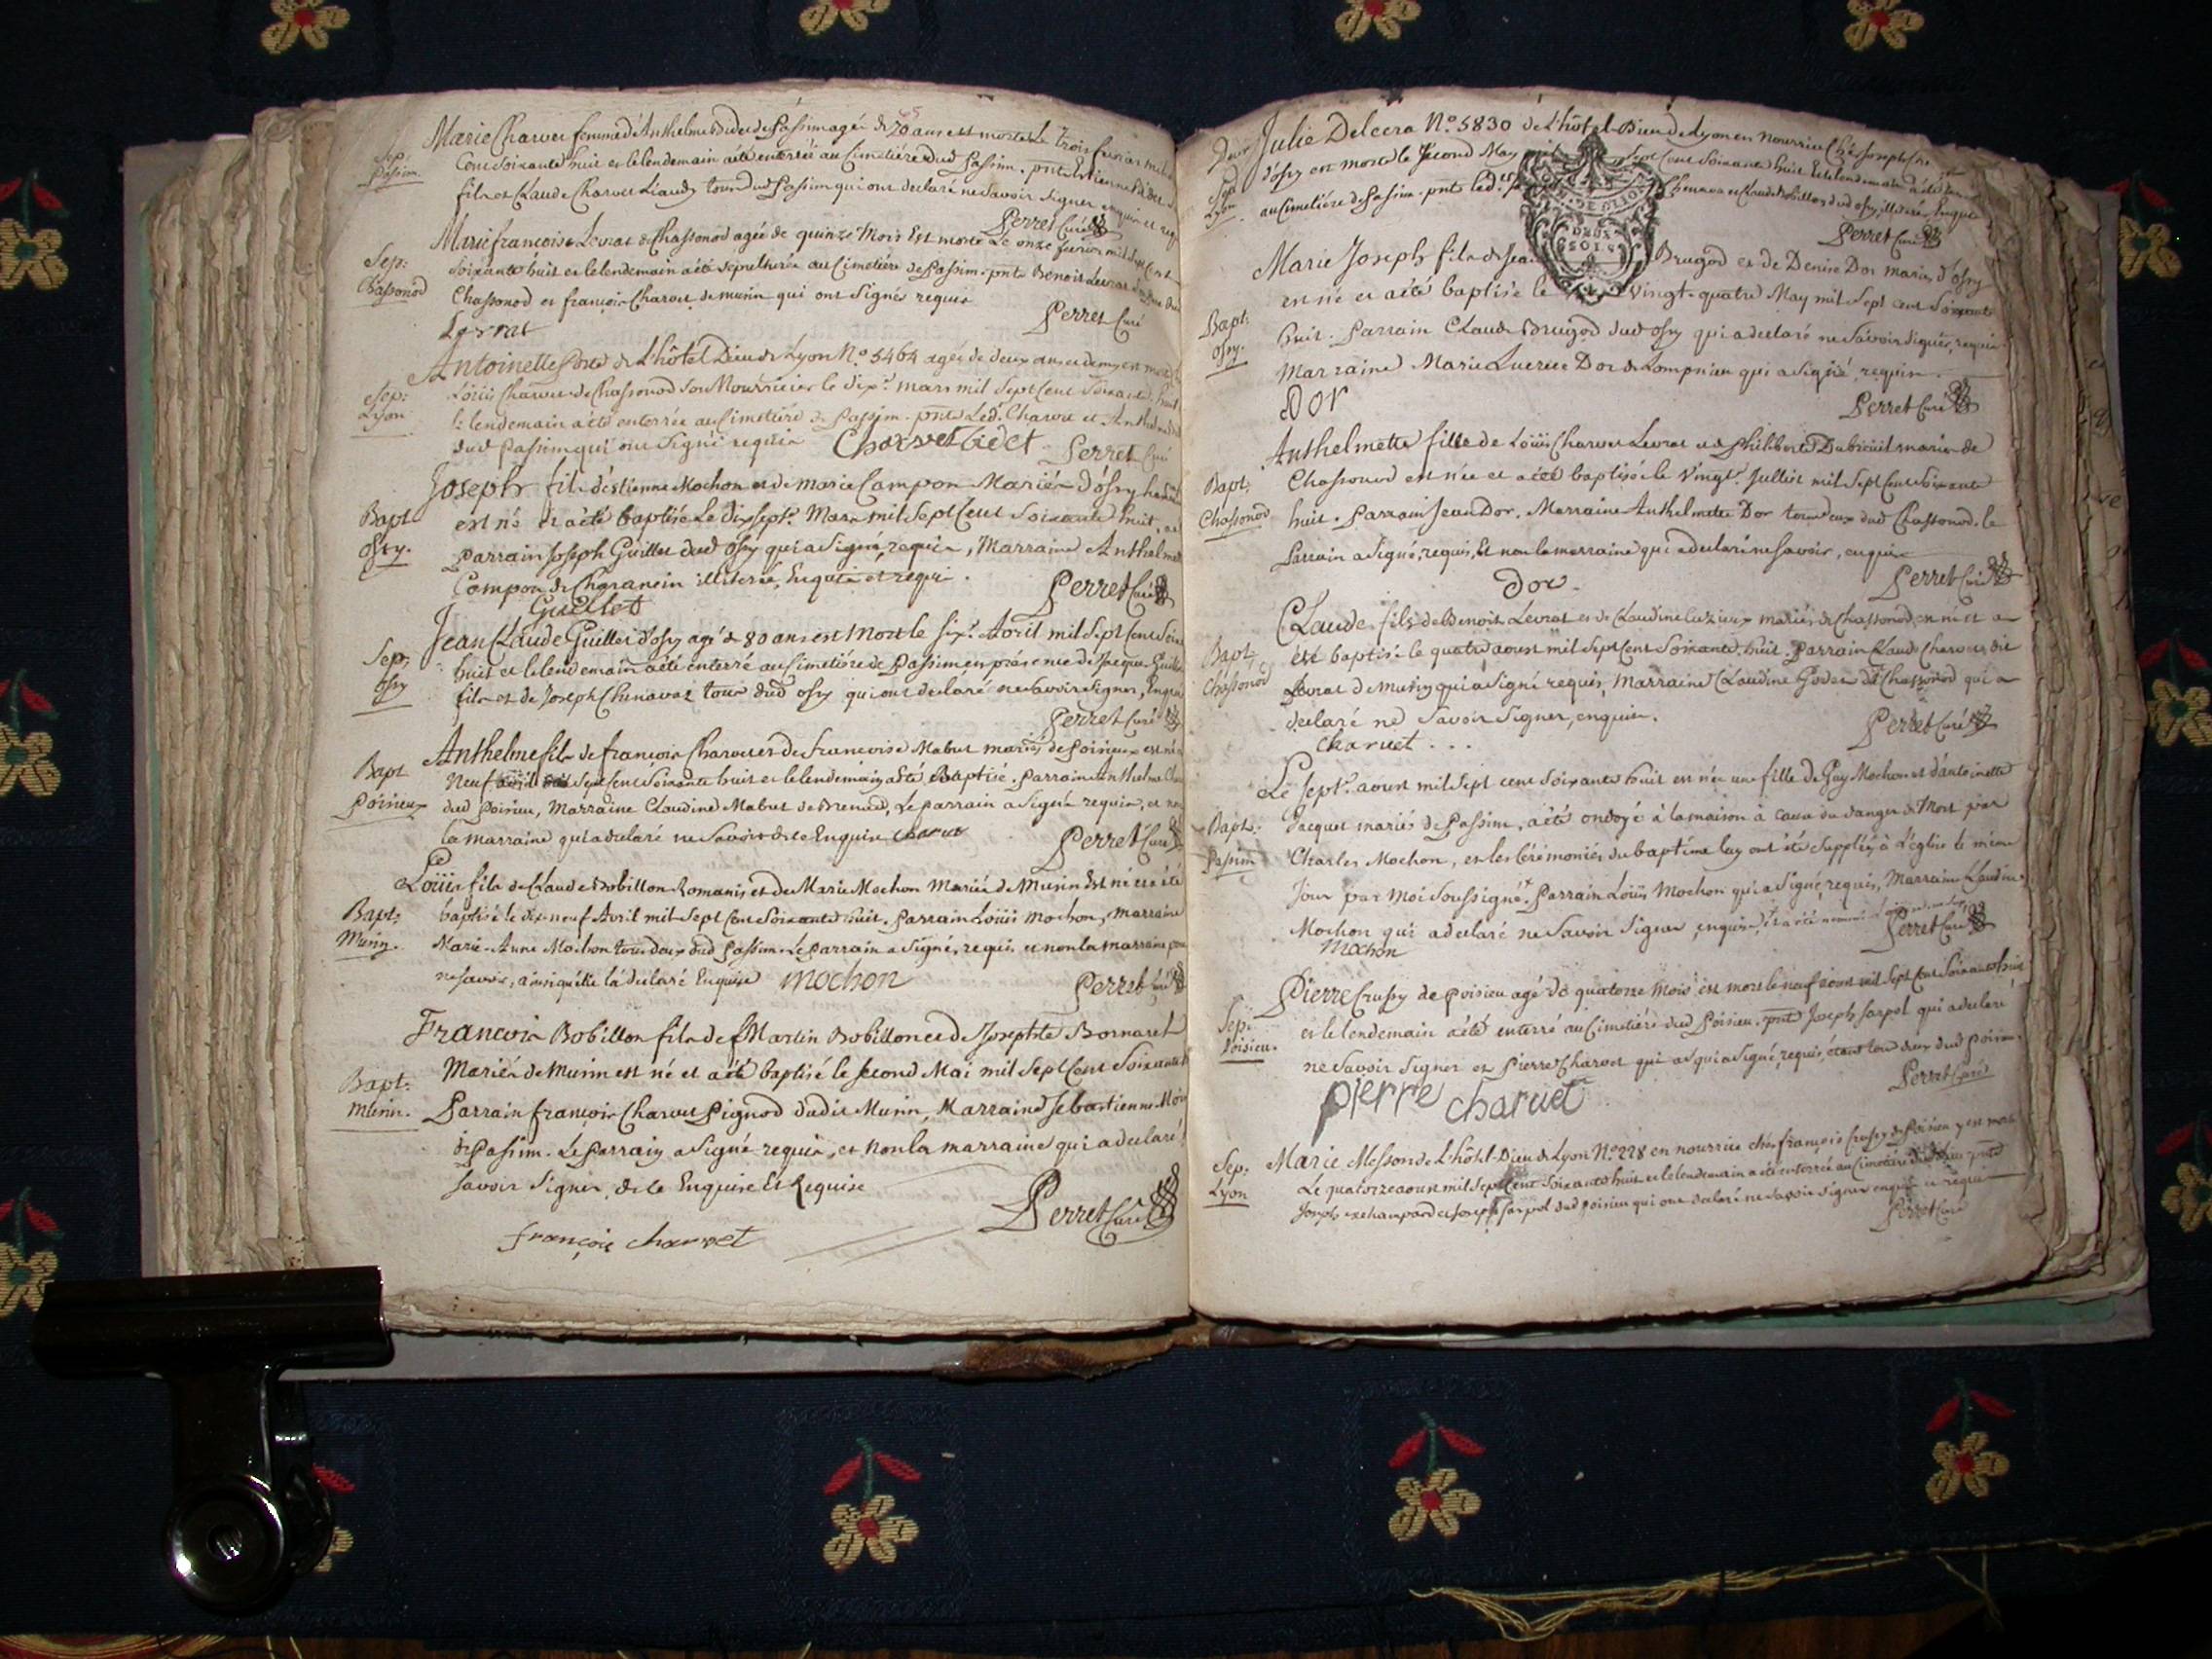 Marie Charvet femme d'Anthelme Didet de Passim agée de 70 ans est morte le trois fevrier mil
Sep: Passim.
Cent Soixante huit et le lendemain a été enterrée au Cimetiére dud Passim. pnts Estienne Didet
fils et Claude Charvet Liaudy tous dud Passim qui ont declaré ne Savoir Signer enquis et req
Perret Curé
Marie francoise Levrat de Chassonod agée de quinze Mois Est morte Le onze fevrier mil Sept Cent
Sep: Chassonod
Soixante huit et le lendemain a été sepulturée au Cimetiére de Passim. pnts Benoit Levrat
Chassonod et françois Charvet de murin qui ont Signés requis
Levrat
Perret Curé
Antoinette de L'hôtel Dieu de Lyon N.o 5464 agée de deux ans et demy est morte
Sep: Lyon
Loüis Charvet de Chassonod Son Nourricier le dix.e mars mil Sept Cent Soixante huit
le lendemain a été enterrée au Cimetiére de Passim. pnts Led. Charvet et Anthelme
dud Passim qui ont Signé requis
Charvet Didet Perret Curé
Joseph fils d'éstienne Mochon et de marie Campon Mariés d'ôsry
Bapt Osry.
est né et a été baptisé Le dix sept.e Mars mil Sept Cent Soixante huit,
parrain Joseph Guillet dud Osry qui a Signé, requis, Marraine Anthelme
Compon de Charancin illiterée, Enquise et requise.
Guillet
Perret Curé
Jean Claude Guillet d'osry agé de 80 ans est Mort le six.e Avril mil Sept Cent Soixante
Sep; Osry
huit et le lendemain a été enterré au Cimetiére de Passim en présence de Jacque Guillet
fils et de Joseph Chenavaz tous dud osry qui ont declaré ne Savoir Signer, Enquis
Perret Curé
Anthelme fils de françois Charvet et de francoise Mabut mariés de Poisieux est né
Bapt Poisieux
Neuf avril mil Sept Cent Soixante huit et le lendemain a été Baptisé. parrain Anthelme
dud Poisieu, Marraine Claudine Mabut de Brenod, Le parrain a Signé requis, et non
la marraine qui a declaré ne Savoir de ce Enquise
Charvet
Perret Curé
Loüis fils de Claude Bobillon Romanis et de Marie Mochon Mariés de Murin Est né et a été
Bapt: Murin.
baptisé le dix neuf Avril mil Sept Cent Soixante huit. parrain Loüis Mochon, Marraine
Marie-Anne Mochon tous deux dud Passim. Le parrain a Signé, requis et non la marraine pour
ne Savoir, ainsi qu'elle l'a declaré Enquise
Mochon
Perret Curé
François Bobillon fils de f Martin Bobillon et de Josephte Bornaret
Bapt: Murin.
Mariés de Murin est né et a été baptisé le second Mai mil Sept Cent Soixante h
Parrain françois Charvet Pignod dudit Murin, Marraine Sebastienne
de Passim. Le Parrain a Signé requis, et Non la marraine qui a declaré
Savoir Signer, de ce Enquise Et Requise
Perret Curé
françois charvet
Julie Delcera N.o 5830 de L'hôtel-Dieu de Lyon en Nourrice Chés Joseph
Sep Lyon
d'osry est morte le Second May mil Sept Cent Soixante huit Et le lendemain a été
au Cimetiére de Passim. pnts led. Chenavaz et Claude Bobillon dud osry illiterés Enquis
DEUX SOLS
Perret Curé
Marie Joseph fils de Jean Brugod et de Denise Dor mariés d'osry
Bapt: Osry.
est né et a été baptisé le vingt-quatre May mil Sept cent Soixante
huit. Parrain Claude Brugod dud osry qui a declaré ne Savoir Signer, requis
Marraine Marie Lucrece Dor de Lompnieu qui a Signé, requise.
Dor
Perret Curé
Anthelmette fille de Loüis Charvet Levrat et de Philiberte Dubreüil mariés de
Bapt. Chassonod
Chassonod est née et a été baptisée le Vingt.e Juillet mil Sept Cent Soixante
huit. Parrain Jean Dor, Marraine Anthelmette Dor tous deux dud Chassonod. le
Parrain a Signé, requis, Et non la marraine qui a declaré ne Savoir, enquise
dor.
Perret Curé
Claude fils de Benoit Levrat et de Claudine mariés de Chassonod, est né et a
Bapt. Chassonod
été baptisé le quatre aoust mil Sept Cent Soixante huit. Parrain Claude Charvet dit
Levrat de Murin qui a Signé requis, Marraine Claudine Godet de Chassonod qui a
declaré ne Savoir Signer, enquise.
charvet . . .
Perret Curé
Le Sept.e aoust mil Sept cent Soixante huit est née une fille de Guy Mochon et d'antoinette
Bapt: Passim
Jacquet mariés de Passim, a été ondoyé à la maison à cause du danger de Mort par
Charles Mochon, et les Cérémoniés du baptême luy ont été Supplées à L'église le même
Jour par Moi Soussigné. Parrain Loüis Mochon qui a Signé, requis, Marraine Claudine
Mochon qui a declaré ne Savoir Signer, enquise,
Mochon
Perret Curé
Pierre Crussy de Poisieu agé de quatorze Mois est mort le neuf aoust mil Sept Cent Soixante huit
Sep: Poisieu.
et le lendemain a été enterré au Cimetiére dud Poisieu. pnts Joseph Sarpol qui a declaré
ne Savoir Signer et Pierre Charvet qui a qui a Signé, requis, étant tous deux dud Poisieu.
Perret Curé
pierre charvet
Marie Messon de L'hôtel-Dieu de Lyon N.o 228 en nourrice chés françois Crussy de Poisieu y est morte
Sep: Lyon
Le quatorze aoust mil Sept Cent Soixante huit et le lendemain a été enterrée au Cimetiére pnts
Joseph et Joseph Sarpol dud Poisieu qui ont declaré ne Savoir Signer enquis et requis
Perret Curé